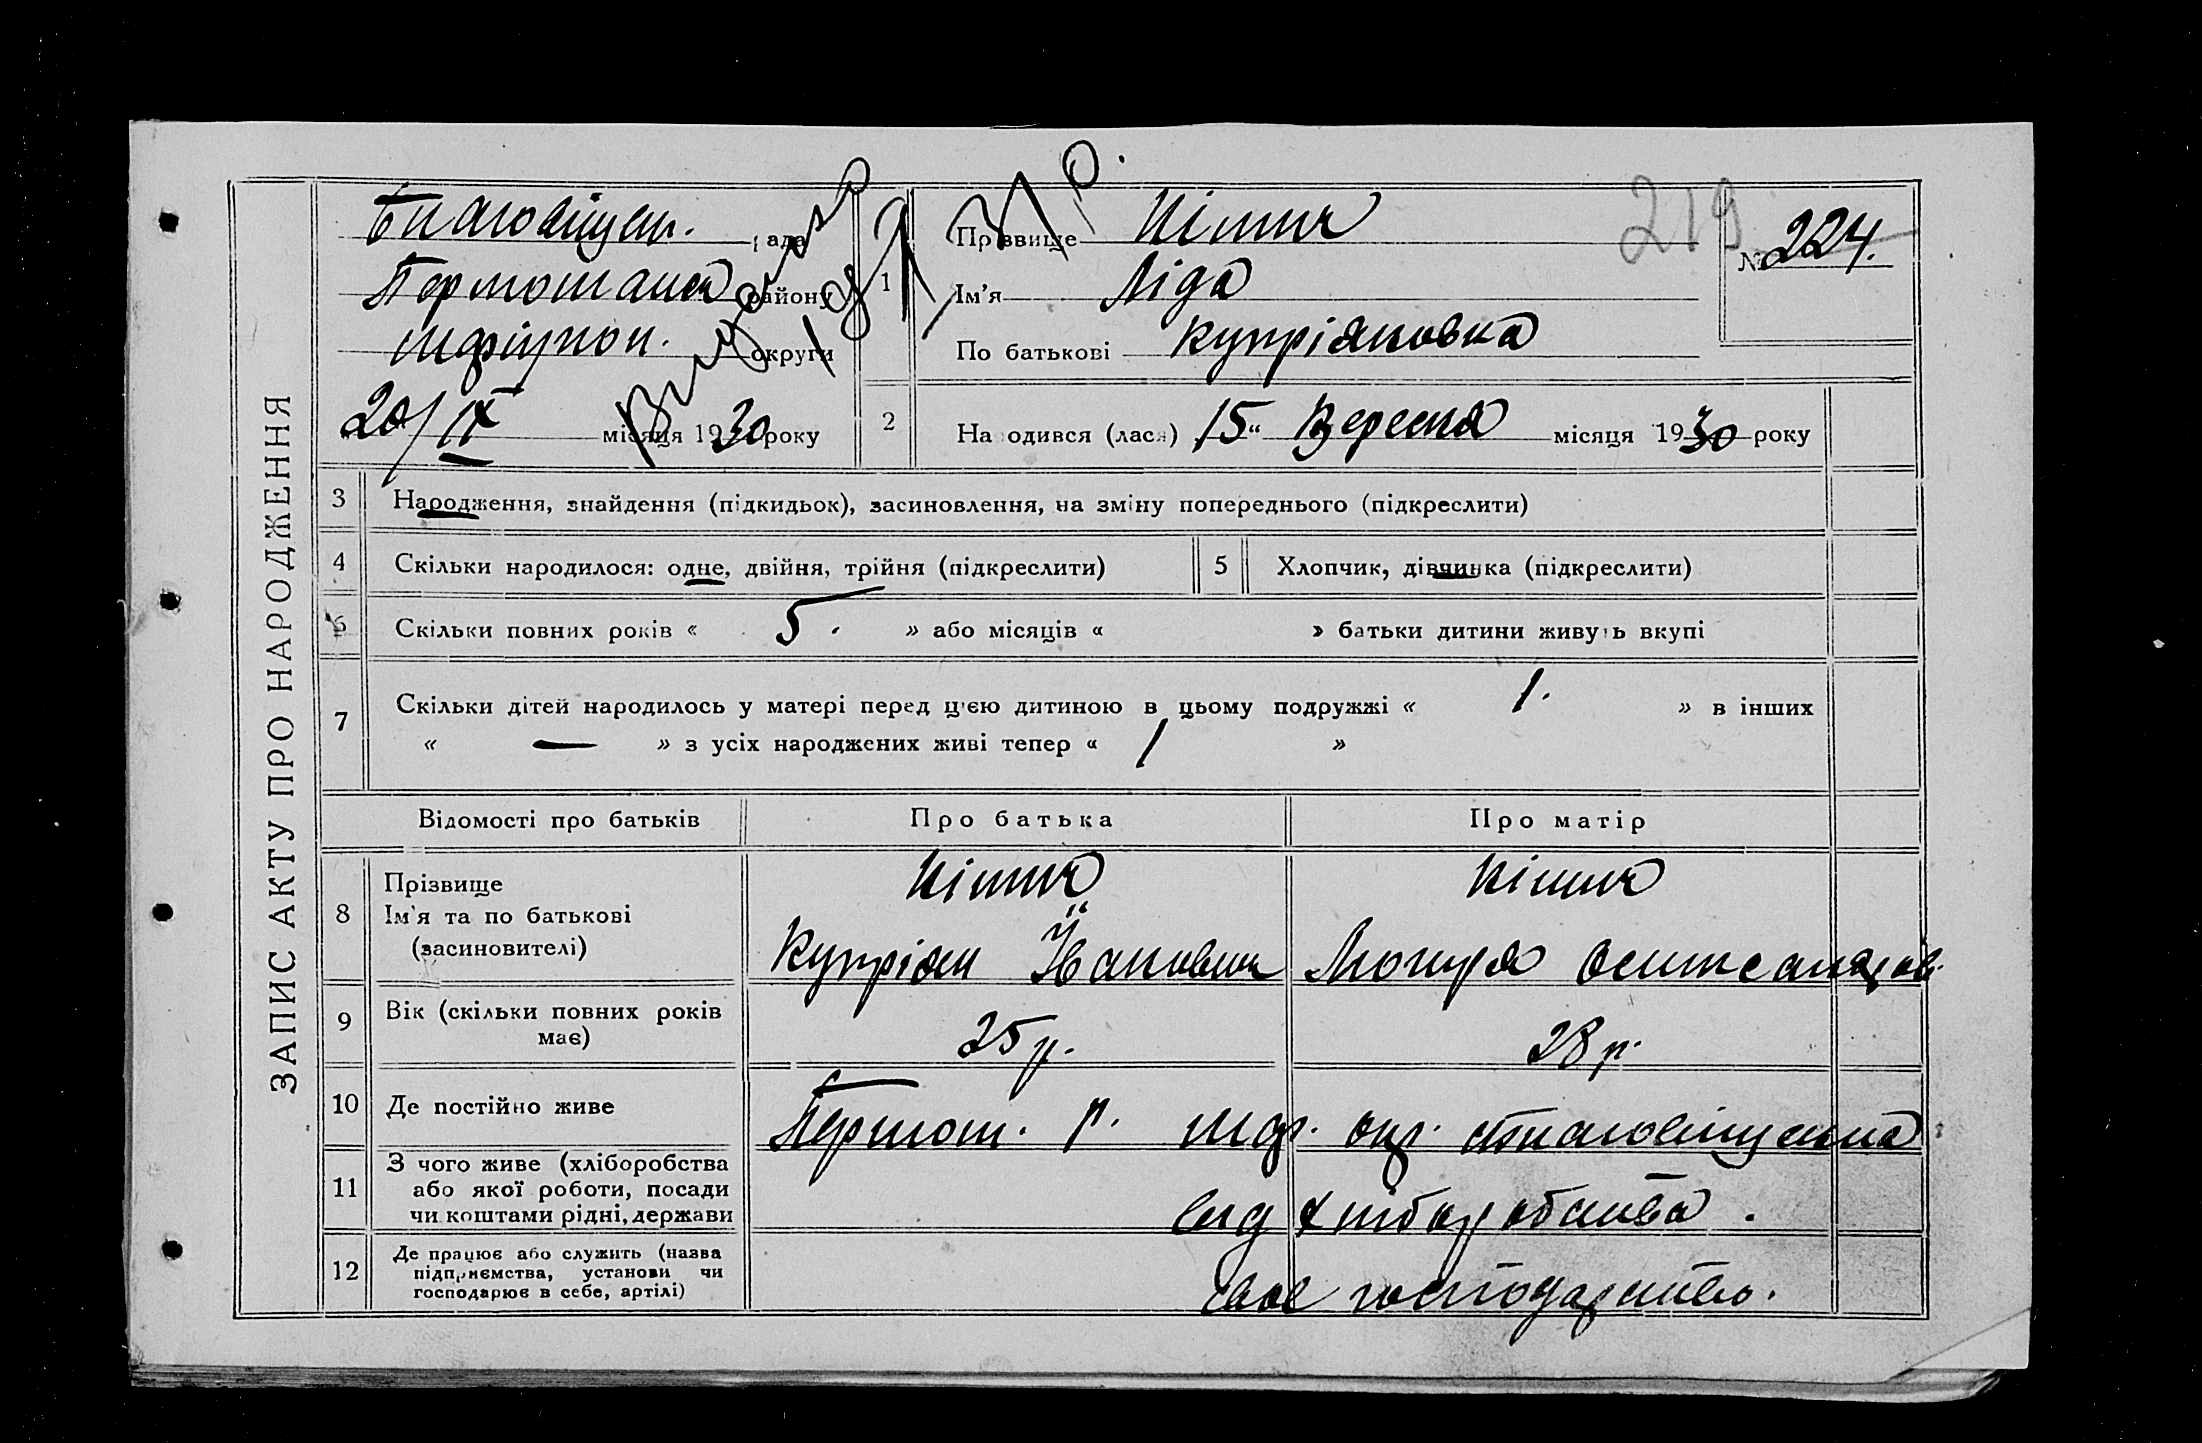 ЗАПИС АКТУ ПРО НАРОДЖЕННЯ
Благовіщен. рада
району
округи
20/IX місяця 1930 року
Видано
219
№ 224.
1
Прізвище Кітич
Ім'я Ліда
По батькові Купріяновна
2 Народився (лася) 15" Вересня місяця 1930 року
3 Народження, знайдення (підкидьок), засиновлення, на зміну попереднього (підкреслити)
4 Скільки народилося: одне, двійня, трійня (підкреслити) 5 Хлопчик, дівчинка (підкреслити)
6 Скільки повних років « 5. » або місяців « » батьки дитини живуть вкупі
7 Скільки дітей народилось у матері перед ц'єю дитиною в цьому подружжі « 1. » в інших
« — » з усіх народжених живі тепер « 1 »
Відомості про батьків Про батька Про матір
8 Прізвище Кітич Кітич
Ім'я та по батькові
(засиновителі) Купріян Іванович
9 Вік (скільки повних років має) 25 р. 28 р.
10 Де постійно живе р. окр. Благовіщенка
11 З чого живе (хліборобства
або якої роботи, посади
чи коштами рідні, держави від хліборобства.
12 Де працює або служить (назва
підприємства, установи чи
господарює в себе, артілі) своє господарство.